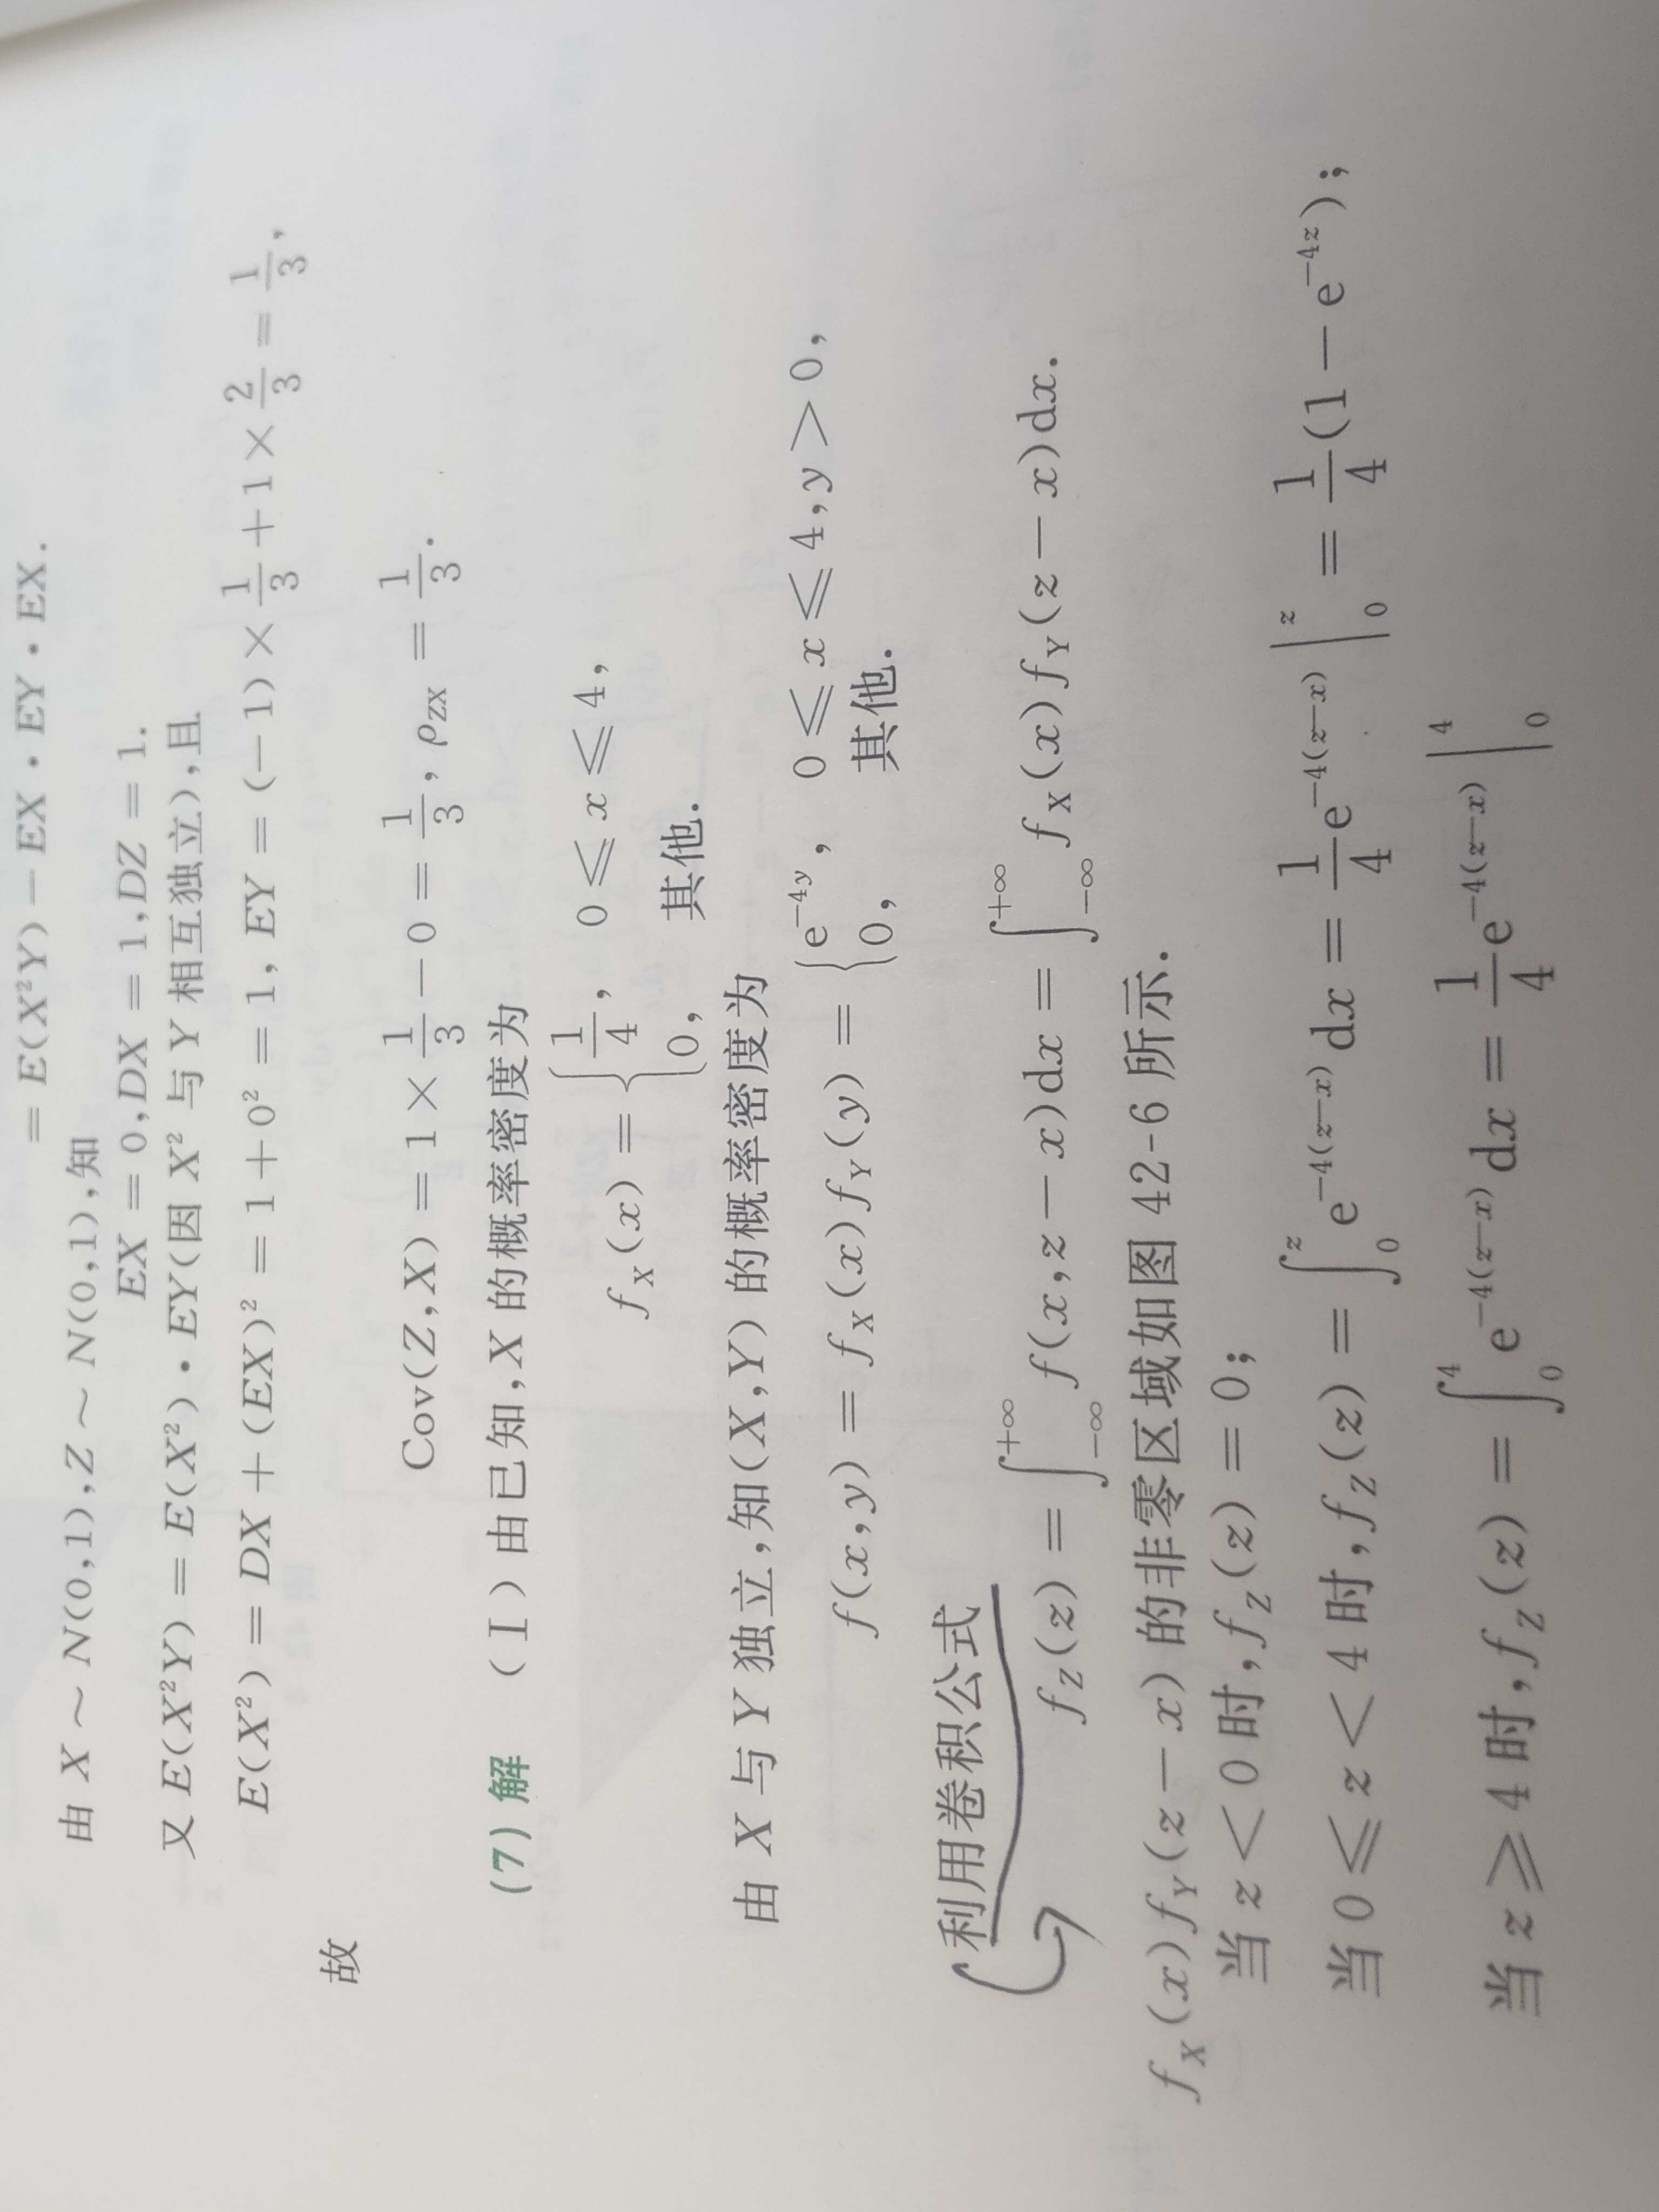 = E(X²Y) − EX · EY · EX.
由 X ~ N(0,1), Z ~ N(0,1),知
EX = 0, DX = 1, DZ = 1.
又 E(X²Y) = E(X²) · EY(因 X² 与 Y 相互独立),且
E(X²) = DX + (EX)² = 1 + 0² = 1, EY = (−1) × 1/3 + 1 × 2/3 = 1/3,
故
Cov(Z,X) = 1 × 1/3 − 0 = 1/3, ρ_ZX = 1/3.
(7) 解 (Ⅰ) 由已知,X 的概率密度为
f_X(x) = { 1/4, 0 ⩽ x ⩽ 4,
0, 其他.
由 X 与 Y 独立,知(X,Y) 的概率密度为
f(x,y) = f_X(x) f_Y(y) = { e^{−4y}, 0 ⩽ x ⩽ 4, y > 0,
0, 其他.
利用卷积公式
f_Z(z) = ∫_{−∞}^{+∞} f(x, z − x)dx = ∫_{−∞}^{+∞} f_X(x) f_Y(z − x)dx.
f_X(x) f_Y(z − x) 的非零区域如图 42-6 所示.
当 z < 0 时, f_Z(z) = 0;
当 0 ⩽ z < 4 时, f_Z(z) = ∫_0^z e^{−4(z−x)} dx = 1/4 e^{−4(z−x)} |_0^z = 1/4 (1 − e^{−4z});
当 z ⩾ 4 时, f_Z(z) = ∫_0^4 e^{−4(z−x)} dx = 1/4 e^{−4(z−x)} |_0^4